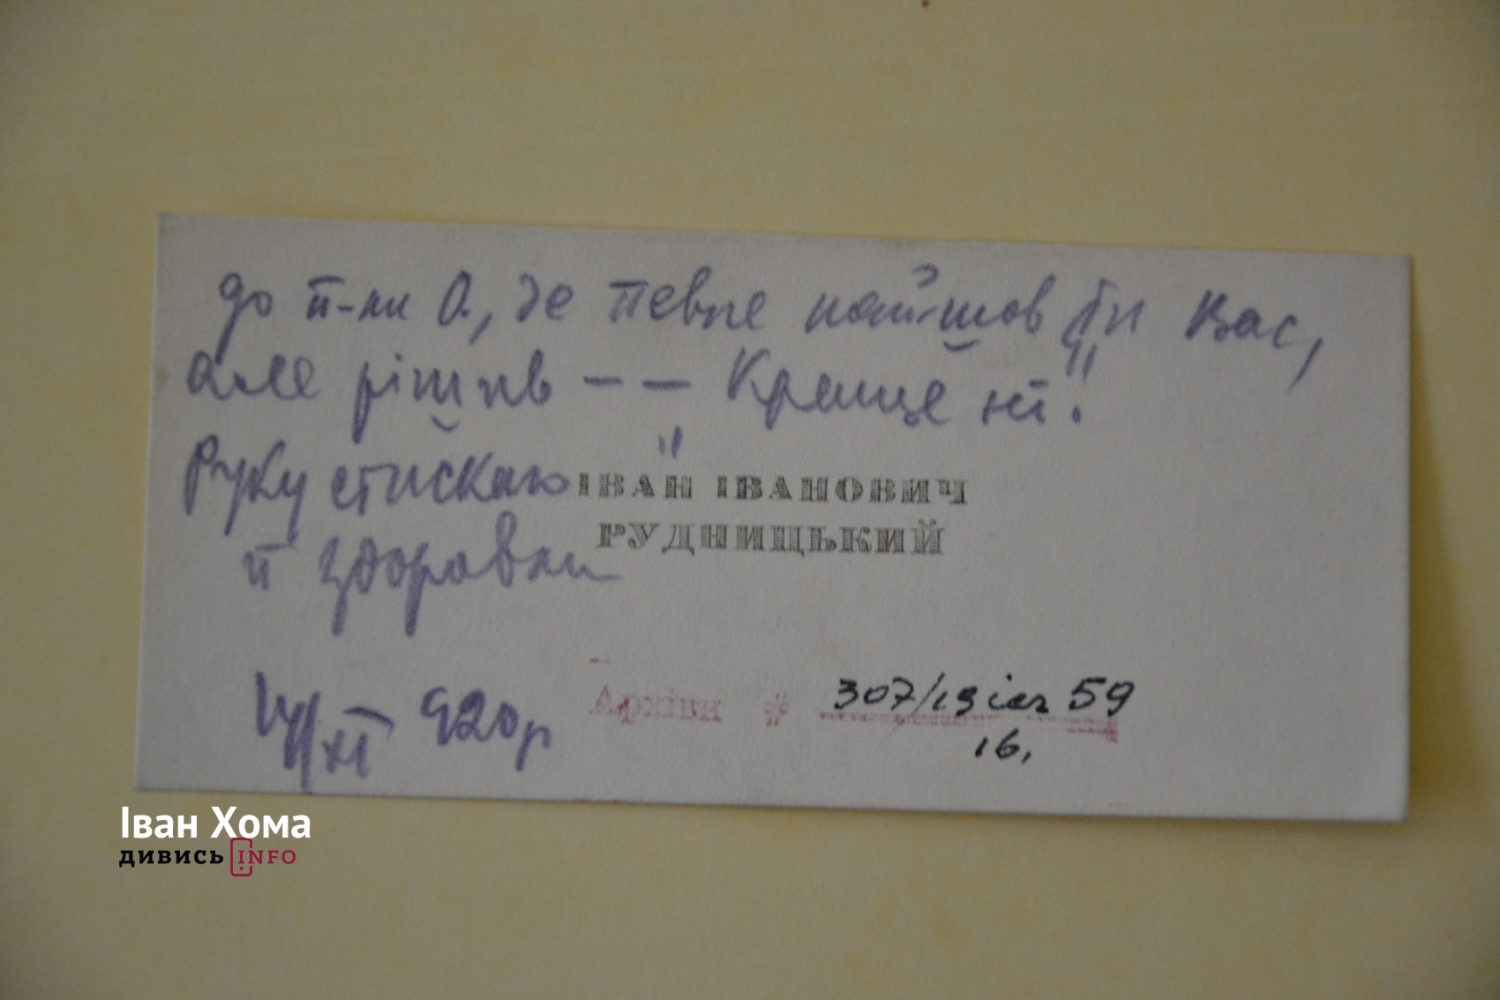 до п-ни О., де певне найшов би Вас,
але рішив – – "Краще ні"!
Руку стискаю
ІВАН ІВАНОВИЧ
РУДНИЦЬКИЙ
й здоровлю
/XI 920р
Архівн #
307/19 59
16.
Іван Хома
дивись INFO